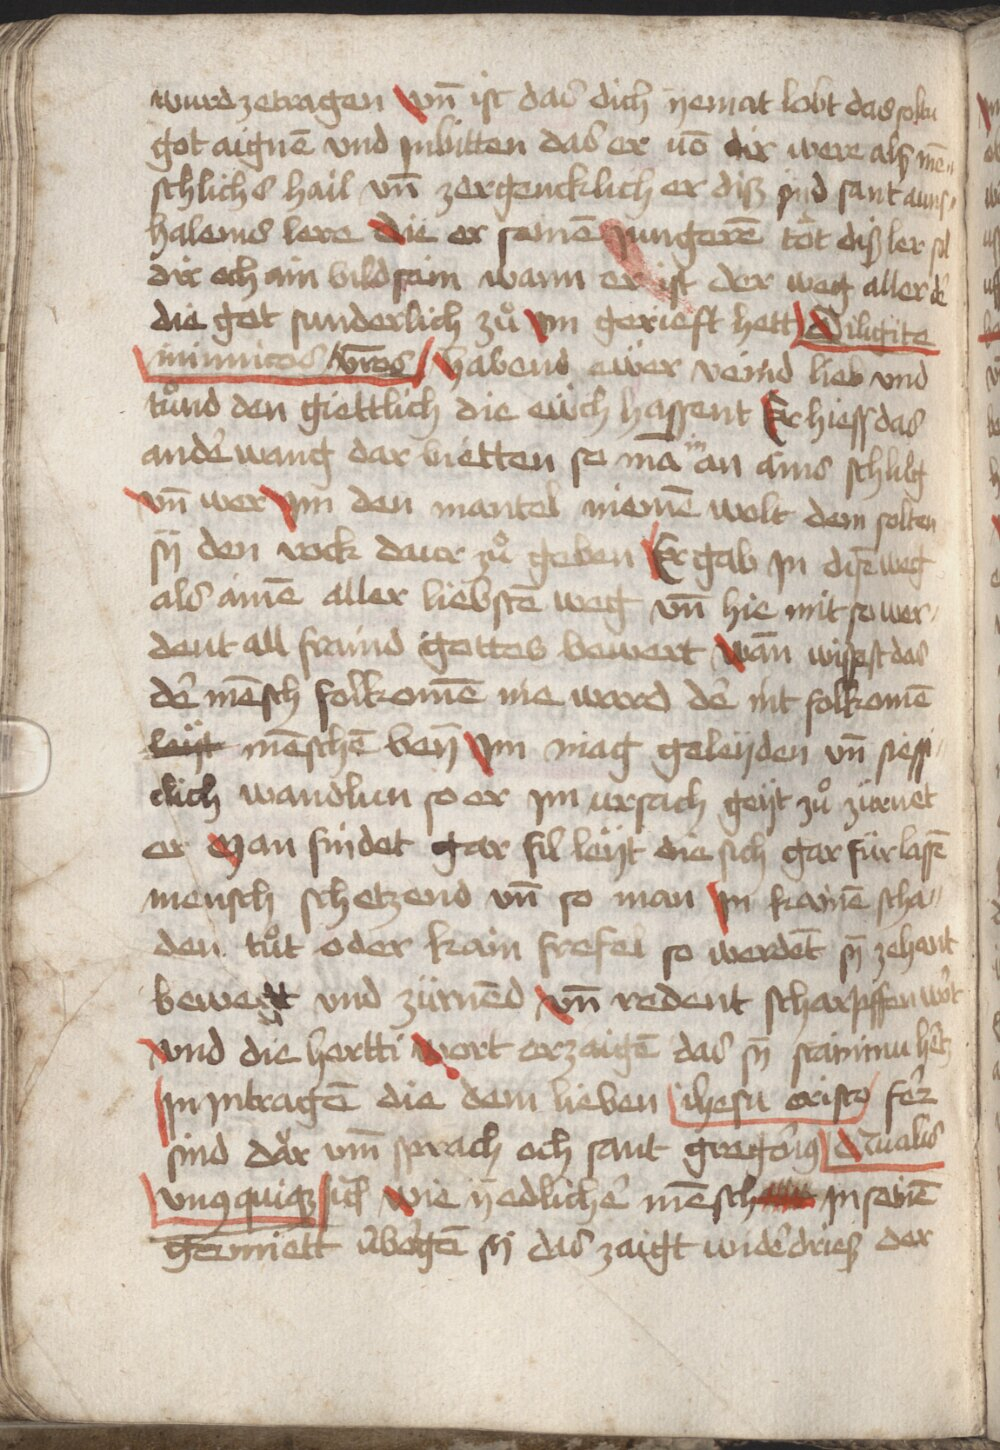 wurd zetragen vn̄ ist das dich yemat lobt das soltu
got aignē vnd Inbitten das er vō dir were als mē-
schlichs hail vn̄ zergencklich er diß sind sant auns-
halenis lere die er seinē Jungerē tǒt diß ler sol
dir och ain bild sein wann er ist der weg aller dē
die got sunderlich zů Im gerieft hett Diligite
inimicos vr̄os habend ewer veind lieb vnd
tůnd den giettlich die ewch hassent Er hiess das
ander̄ wang dar bietten so mā in an ains schlůg
vn̄ wer Im den mantel niemē wolt dem solten
sy̅ den rock darzů geben Er gab In disē weg
als ainē aller liebstē weg vn̄ hie mit so wer-
dent all fraind gottes bewert Wān wissest das
der̄ mēsch folkomē nie ward der̄ nit folkomē
mēschē bey Im mag geleyden vn̄ siessi-
clich wandlun so er Im vrsach geyt zů zürnet
er Man findet gar fil leyt die sich gar für lassē
mensch schetzend vn̄ so man In kainē scha-
den tůt oder kain frefel so werdēt sy̅ zehant
bewegt vnd zürnēd vn̄ redent scharpffen wor̄t
vnd die hertti wort erzaigē das sy̅ staininu her̄tz
In Intragē die dem lieben ihesu cristo fer̄
sind dar vm̄ sprach och sant gregori9 Qualis
vnusquisq3 wie yedlicher̄ mēsch In seinē
gemiett v̈erbor̄gē sy das zaigt wider̄drieß der